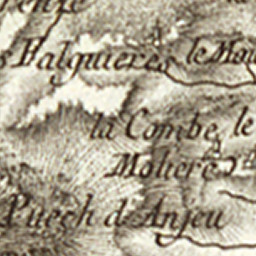 Falguieres le Mou
la Combe le
Moliere
Puech d'Anjeu